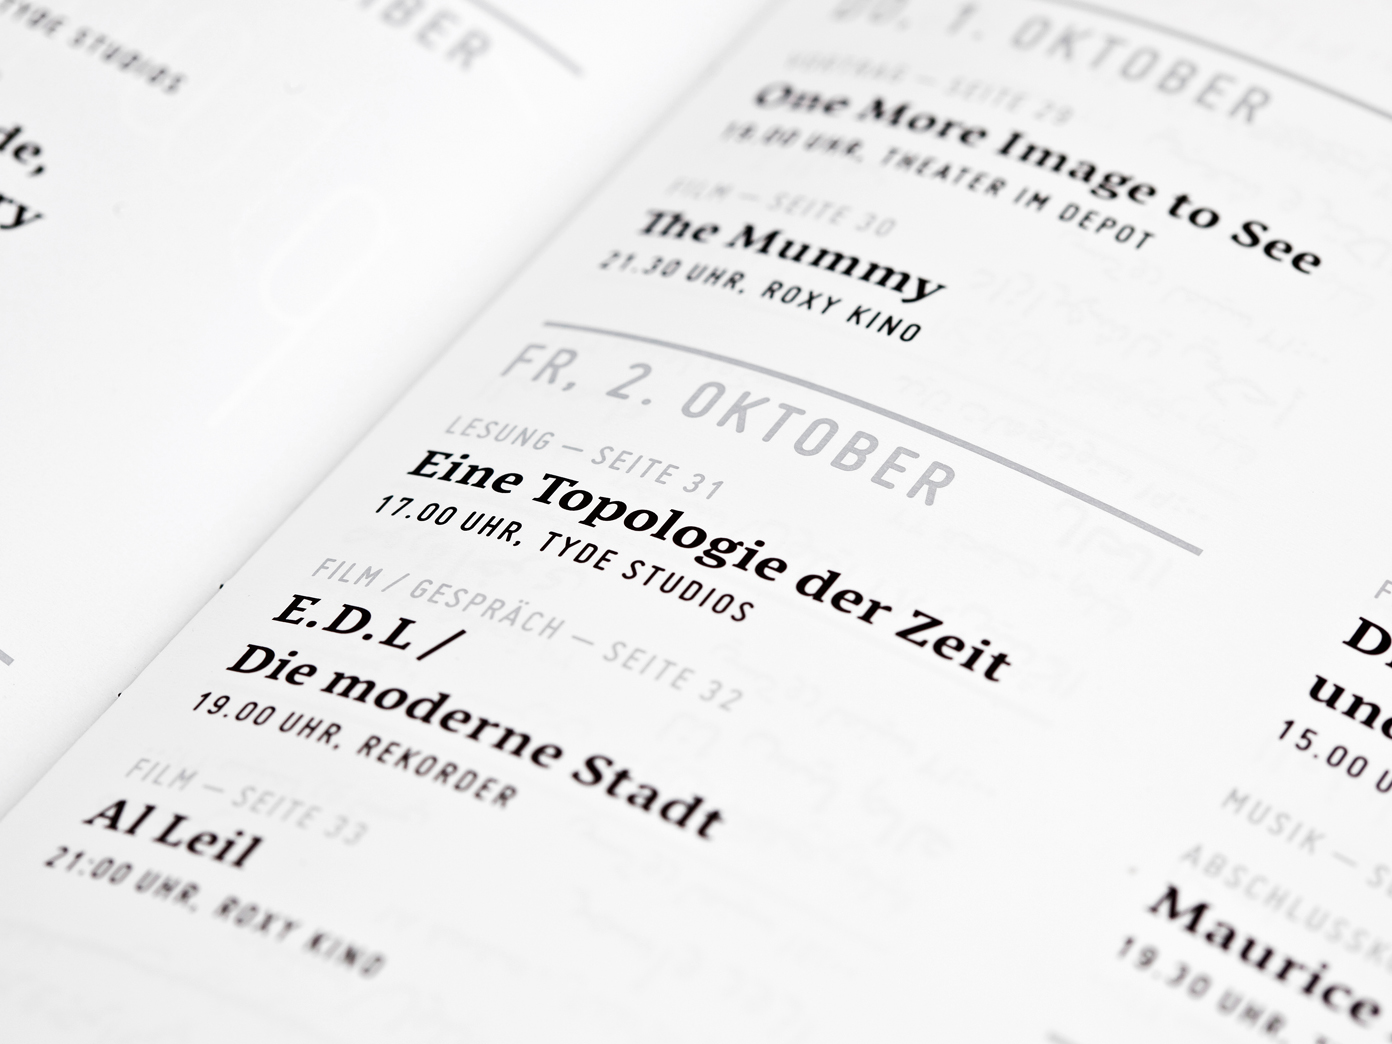 BER
TYDE STUDIOS
de,
ry
DO, 1. OKTOBER
VORTRAG — SEITE 29
One More Image to See
19.00 UHR, THEATER IM DEPOT
FILM — SEITE 30
The Mummy
21.30 UHR, ROXY KINO
FR, 2. OKTOBER
LESUNG — SEITE 31
Eine Topologie der Zeit
17.00 UHR, TYDE STUDIOS
FILM / GESPRÄCH — SEITE 32
E.D.L /
Die moderne Stadt
19.00 UHR, REKORDER
FILM — SEITE 33
Al Leil
21:00 UHR, ROXY KINO
15.00 U
MUSIK — S
ABSCHLUSSK
Maurice
19.30 UHR,